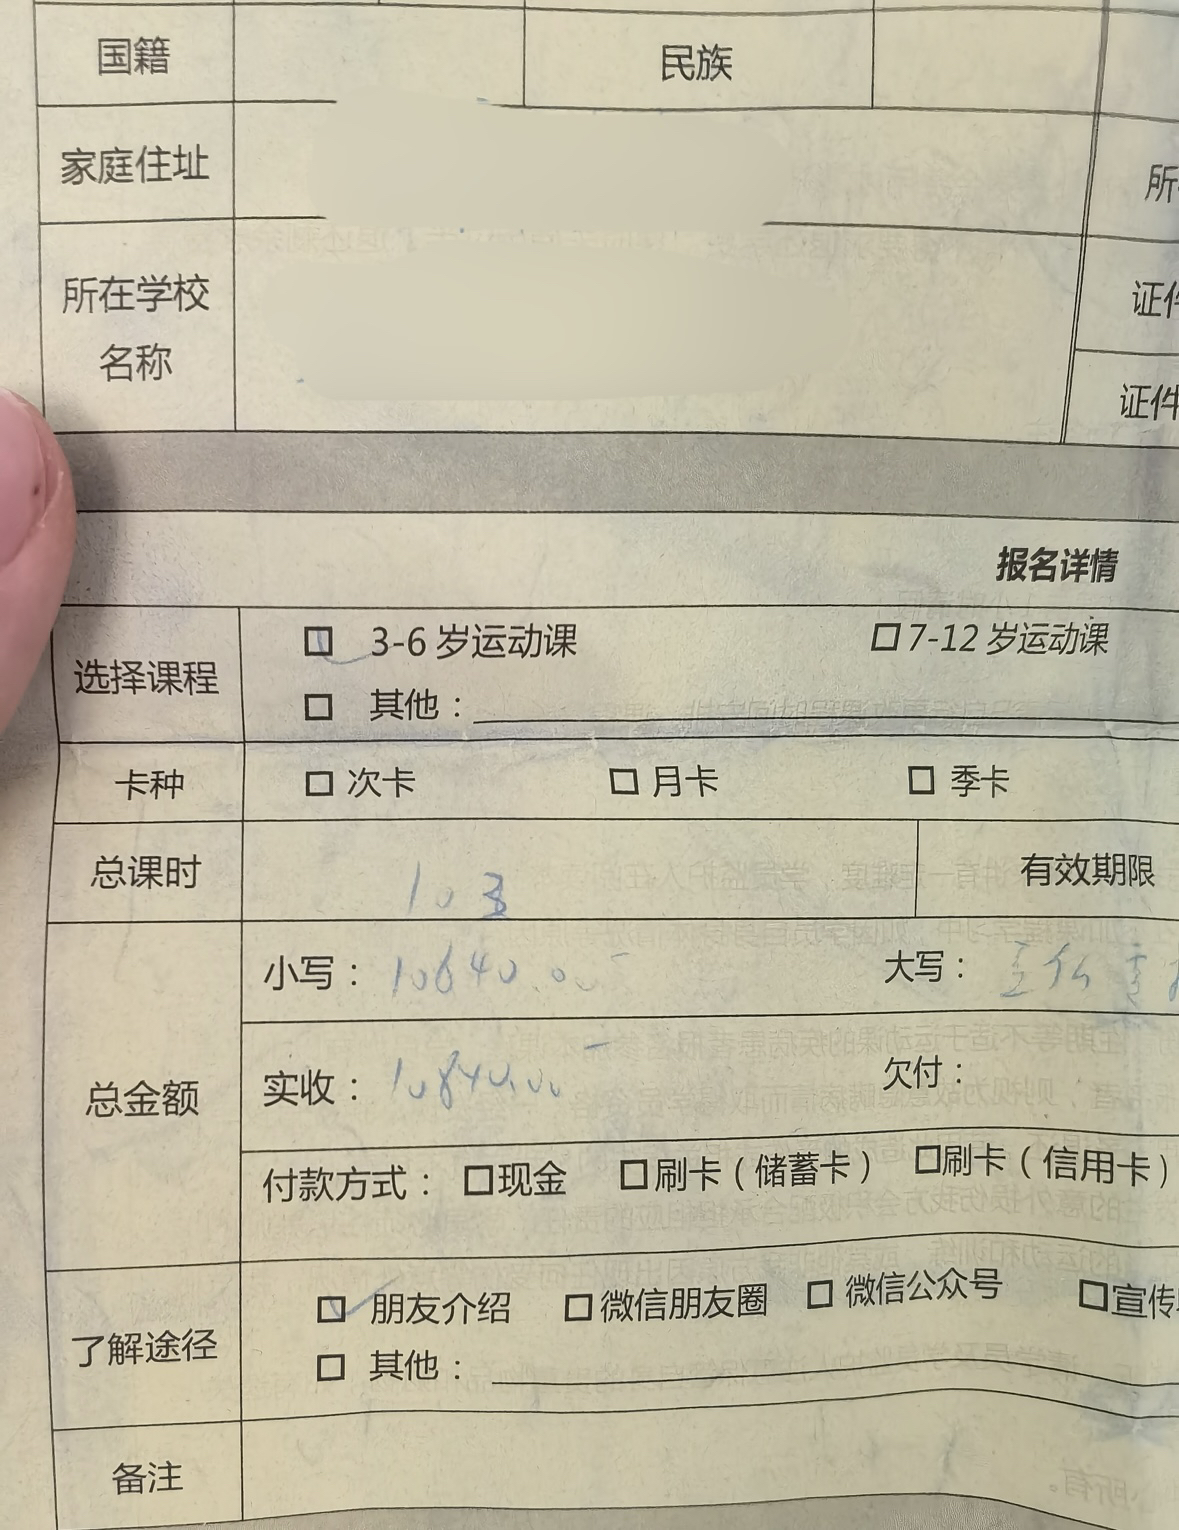 国籍 民族
家庭住址 所
所在学校 证件
名称 证件
报名详情
选择课程 □ 3-6 岁运动课 □ 7-12 岁运动课
□ 其他：
卡种 □ 次卡 □ 月卡 □ 季卡
总课时 有效期限
总金额 小写：10640.00 大写：
实收：10840.00 欠付：
付款方式：□现金 □刷卡（储蓄卡） □刷卡（信用卡）
了解途径 □ 朋友介绍 □ 微信朋友圈 □ 微信公众号 □宣传
□ 其他：
备注